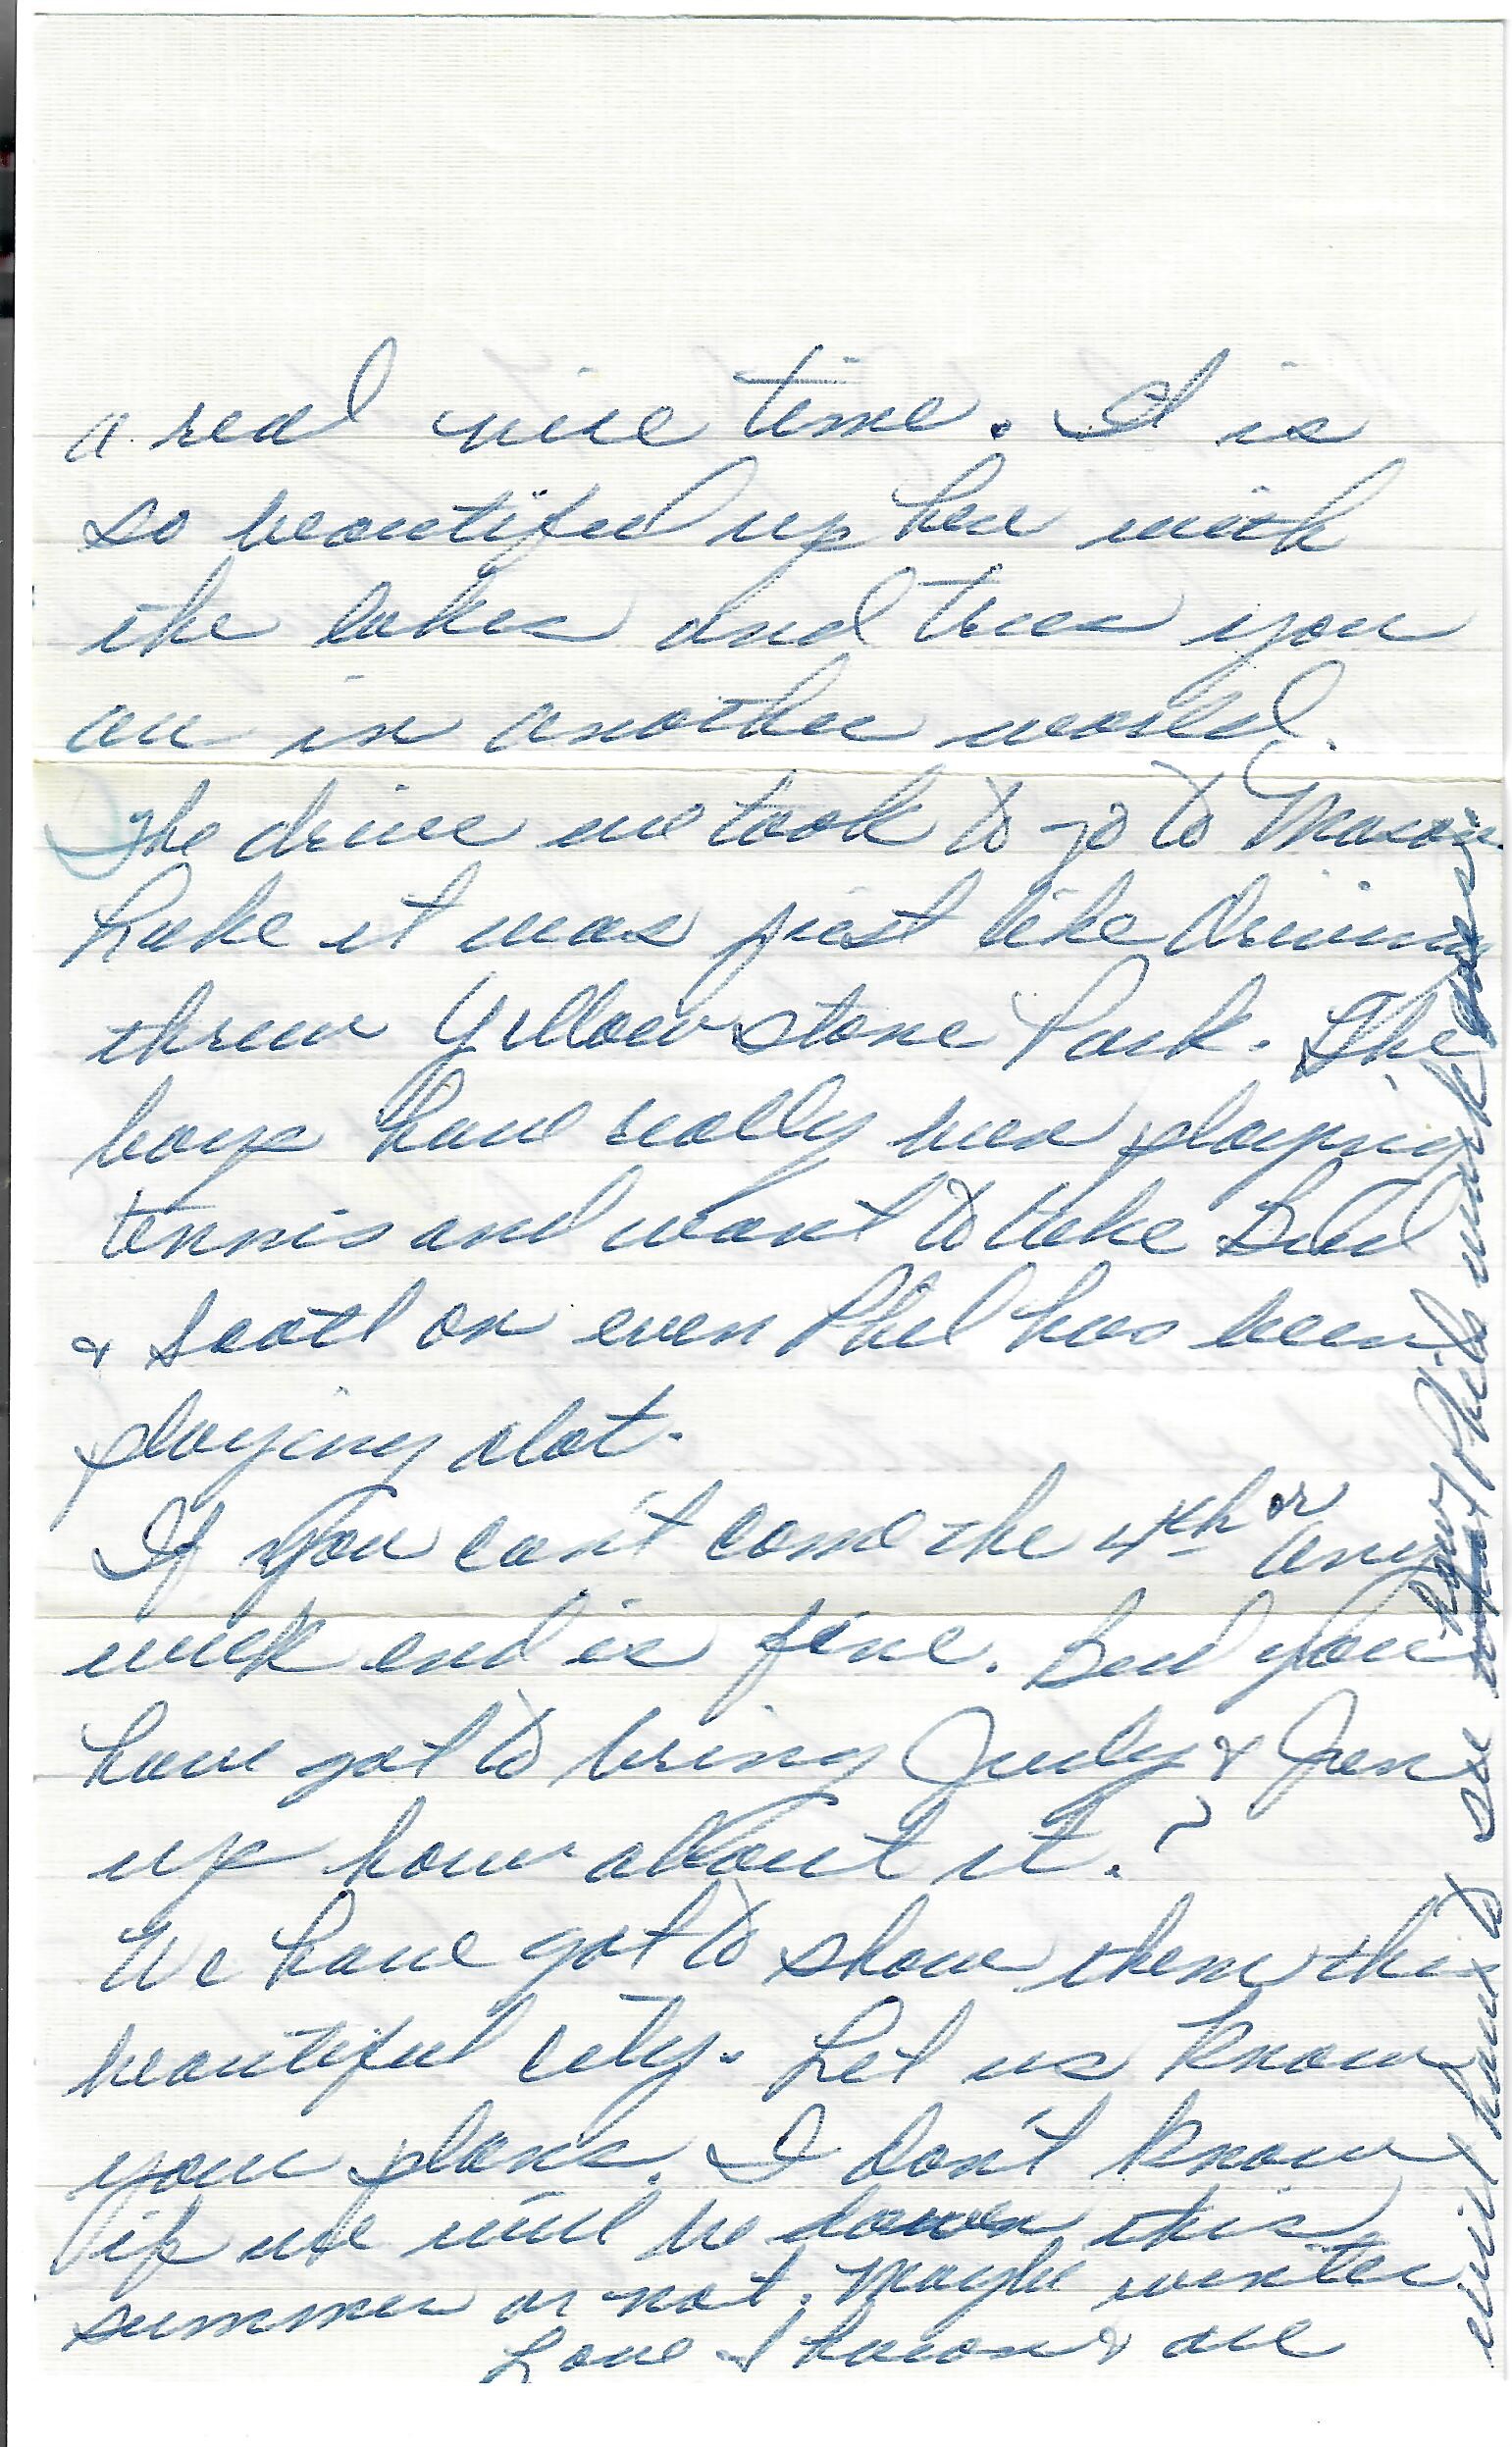 a real nice time. It is
so beautiful up here with
the lakes and trees you
are in another world.
The drive we took to go to Mason
Lake it was just like driving
threw Yellow stone Park. The
boys have really been playing
tennis and want to take Bud
& Scott on even Phil has been
playing alot.
If you can't come the 4th or any
week end is fine. Bud you
have got to bring Judy & Jen
up how about it.?
We have got to show them this
beautiful city. Let us know
your plans. I don't know
if we will be down this
summer or not. Maybe winter
Love Sharon & all
will have to see how Phils work goes.